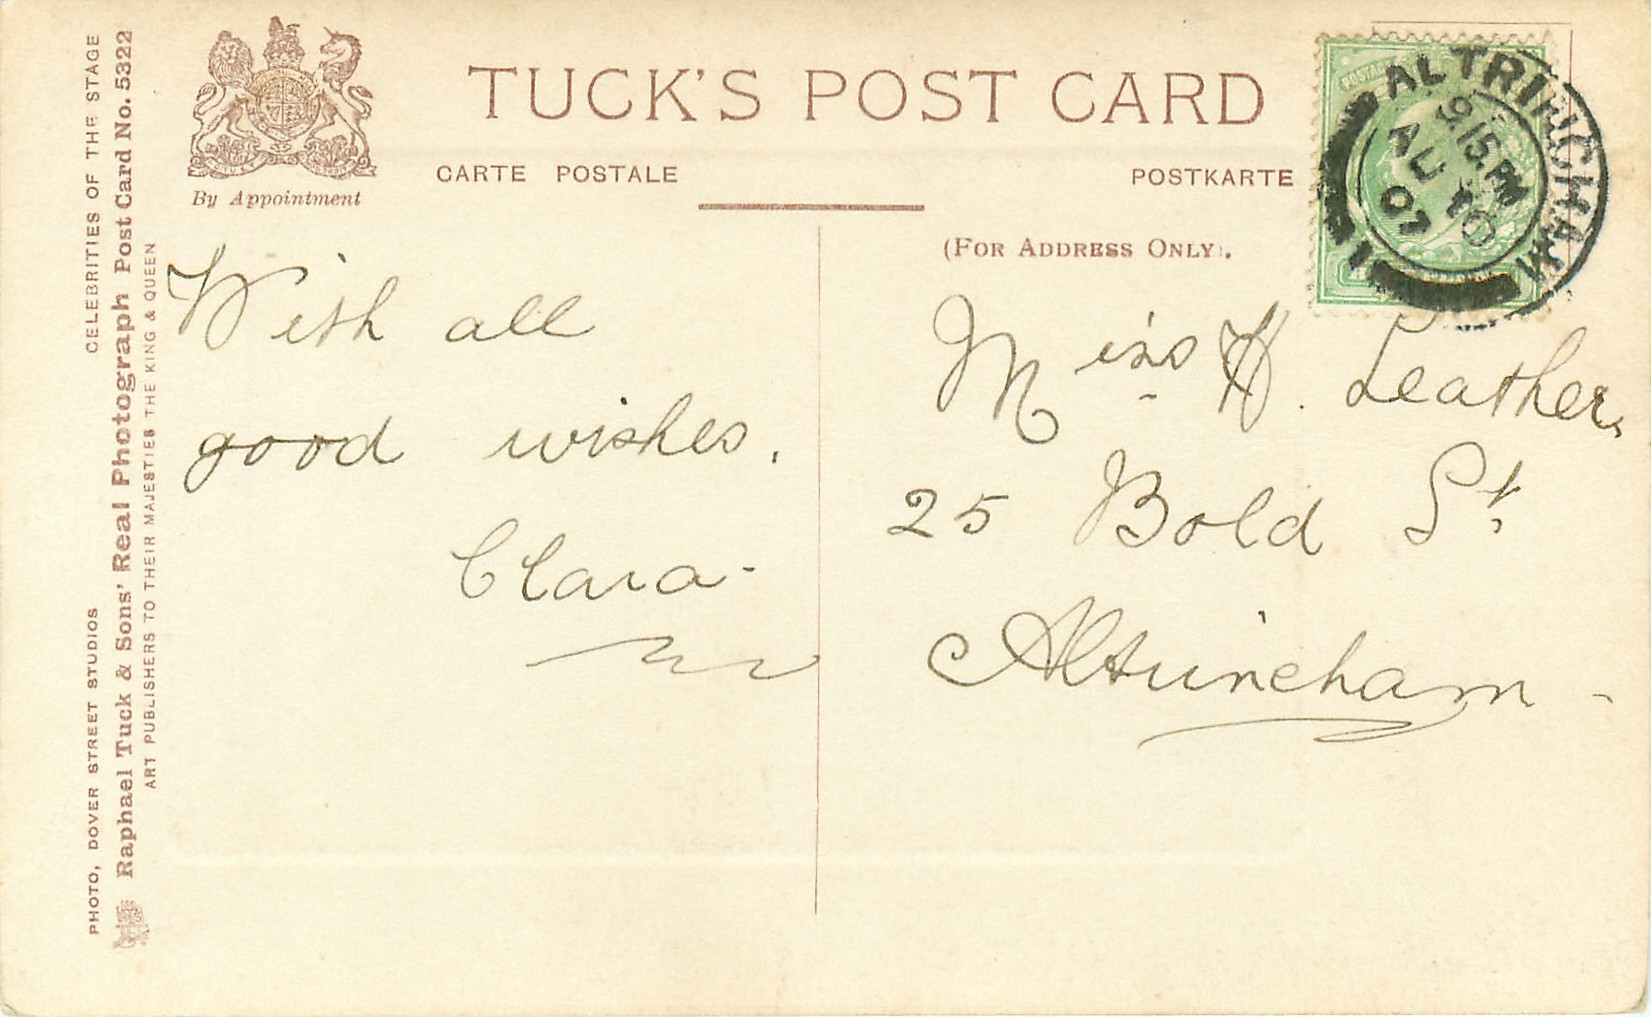 TUCK'S POST CARD
CARTE POSTALE
POSTKARTE
By Appointment
(FOR ADDRESS ONLY).
CELEBRITIES OF THE STAGE
PHOTO, DOVER STREET STUDIOS
Raphael Tuck & Sons' Real Photograph Post Card No. 5322
ART PUBLISHERS TO THEIR MAJESTIES THE KING & QUEEN
ALTRINCHAM
9.15 PM
AU 10
07
1
POSTAGE
With all
good wishes.
Clara
Miss H. Leather
25 Bold St.
Altrincham